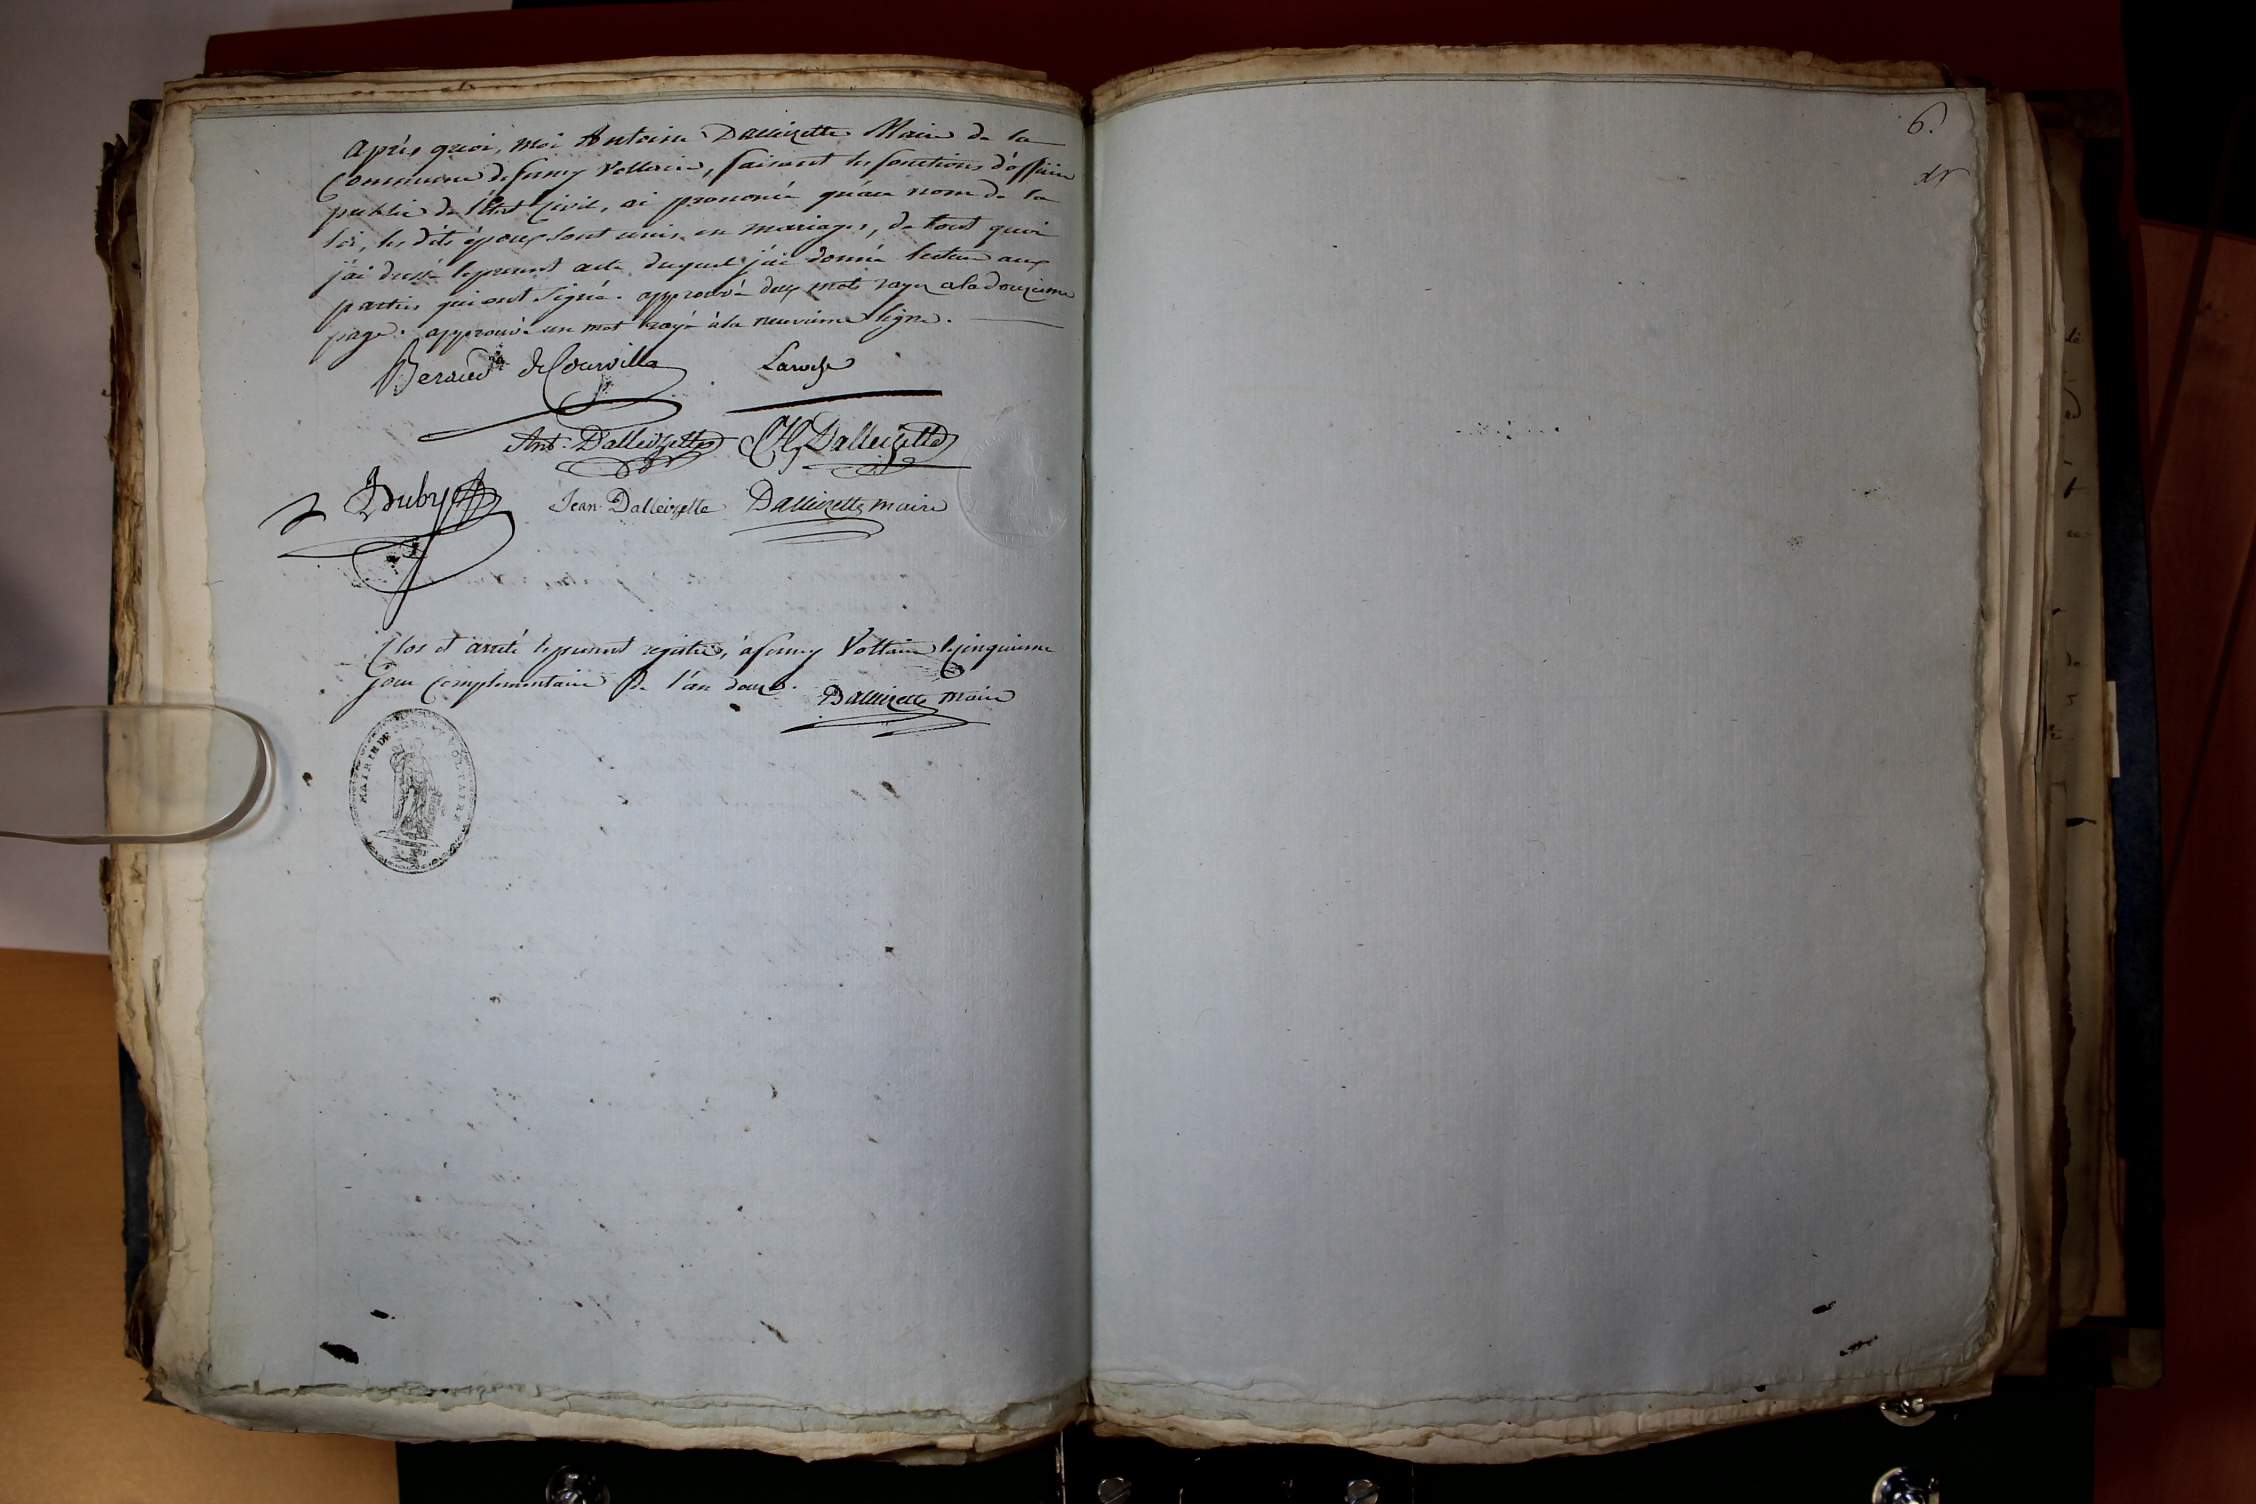 après quoi, moi Antoine Dalleizette Maire de la
Commune de ferney Voltaire, faisant les fonctions d'officier
public de l'état Civil, ai prononcé qu'au nom de la
loi, les dits époux sont unis en mariage, de tout quoi
j'ai dressé le présent acte duquel j'ai donné lecture aux
parties qui ont signé. approuvé deux mots rayés a la douzieme
page. approuvé un mot rayé à la neuvieme ligne.
de Courville Laroche
Ant. Dalleizette Ch Dalleizette
Duby Jean Dalleizette Dalleizette maire
Clos et arreté le présent registre, à ferney Voltaire le cinquieme
jour complémentaire de l'an douze. Dalleizette maire
MAIRIE DE FERNEY VOLTAIRE
6.